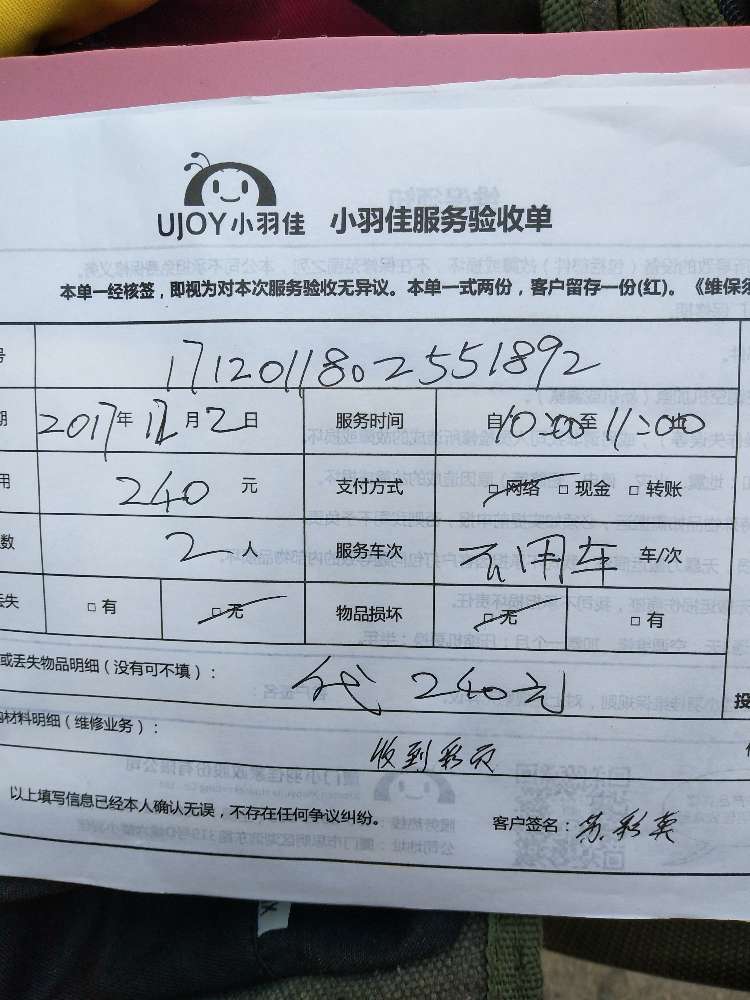 UJOY小羽佳 小羽佳服务验收单
本单一经核签，即视为对本次服务验收无异议。本单一式两份，客户留存一份(红)。《维保须
号 1712011802551892
期 2017年12月2日 服务时间 自10:00至11:00
用 240元 支付方式 □网络 □现金 □转账
数 2人 服务车次 不用车 车/次
丢失 □有 □无 物品损坏 □无 □有
或丢失物品明细（没有可不填）： 代 240元
投
材料明细（维修业务）：
收到彩页
以上填写信息已经本人确认无误，不存在任何争议纠纷。 客户签名：苏彩英